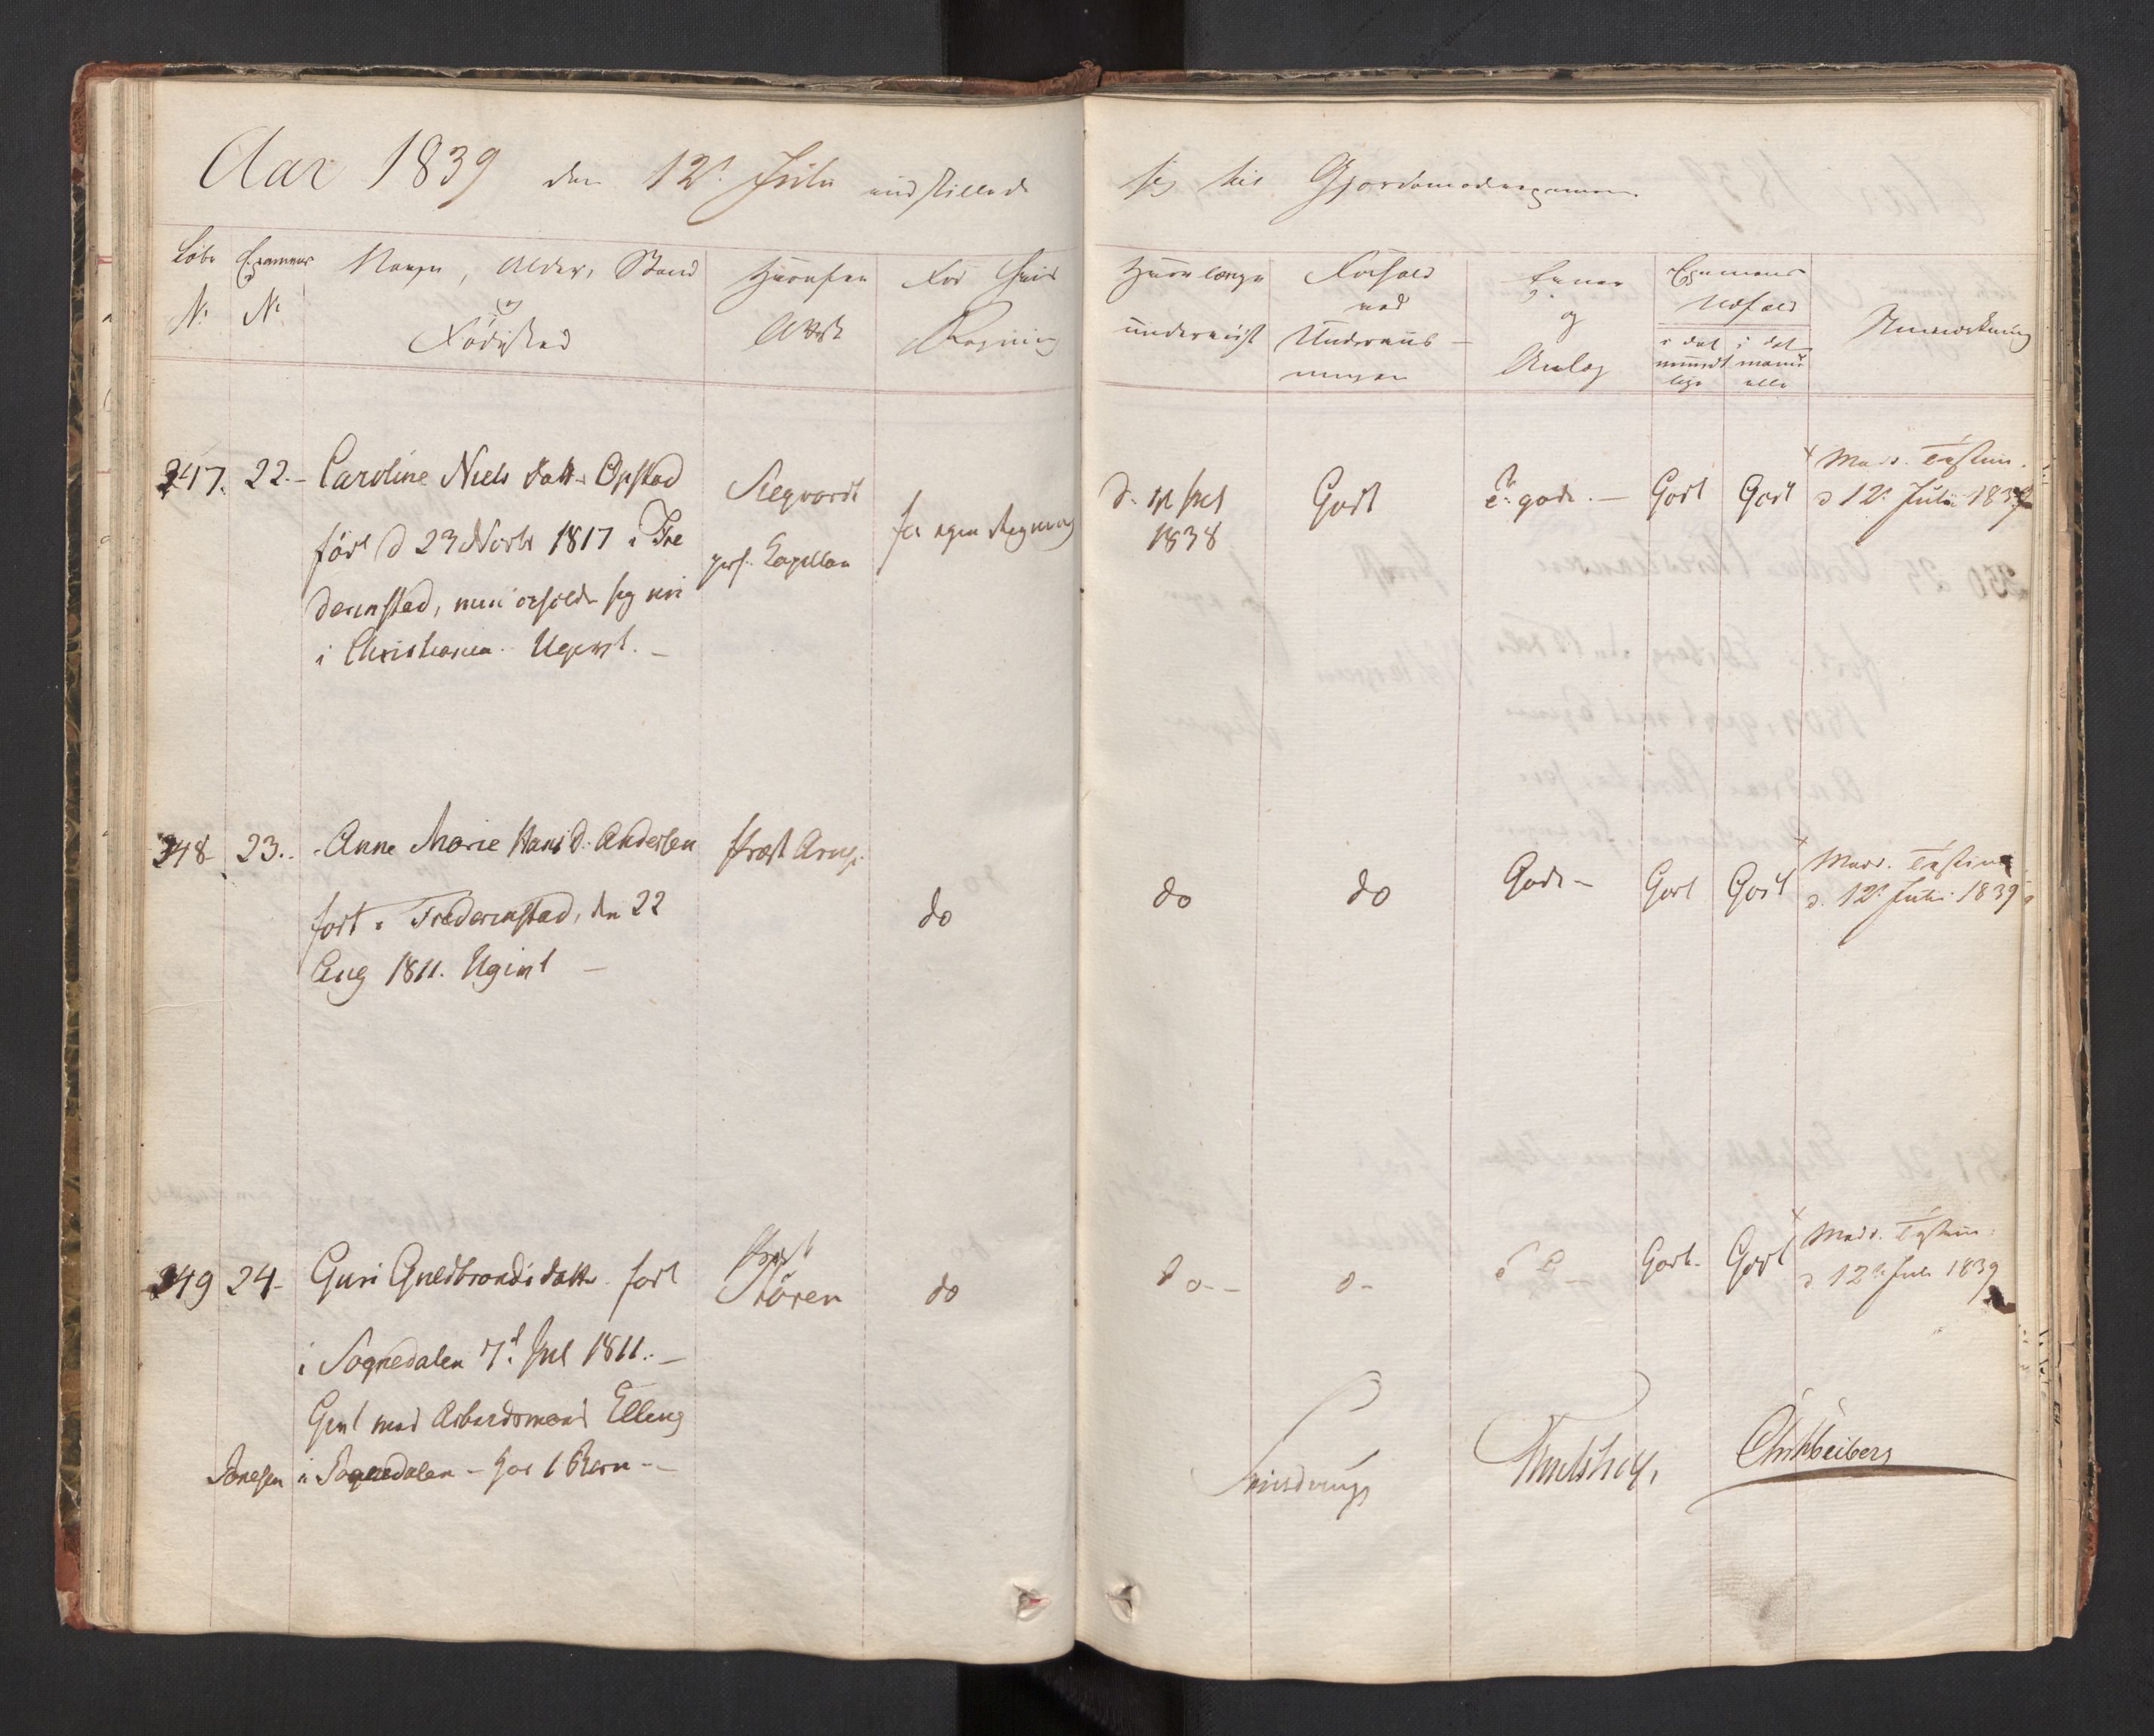 Aar 1839 den 12t. Julii indstillede
sig til Gjordemoderexamen
Löbe N:
Examens N:
Navn, Alder, Stand
og
Födested
Hvorfra
Attest
For hvis
Regning
Hvorlænge
underviist
Forhold
ved
Underviis-
ningen
Evner
og
Anlæg
Examens
Udfald
i det
mundt
lige
i det
manu
elle
Anmærkning
347. 22.- Caroline Niels datt. Opstad
född d 23 Novbr 1817 i Fre
dericstad, men opholdt sig nu
i Christiania. Ugivt. -
Siegvardt
pers. Capellan
for egen Regning
d. 1st Juli
1838
Godt
gode. -
Godt
Godt
Mads.
d 12t Julii 1839
348- 23.. Anne Marie Hans d. Andersen
fört i Fredericstad, den 22
Aug 1811. Ugivt -
Præst Arup.
do
do
do
Gode -
Godt
Godt
Mads.
d. 12t Julii 1839
349 24- Guri Guldbrands datter fört
i Sognedalen 7d. Jul 1811. -
Givt med Arbeidsmand Elling
Tonesen i Sognedalen - har 1 Barn -
Præst
do
do - -
Godt-
Godt
Mads.
d 12te Juli 1839
Thulstrup,
Chr Heiberg